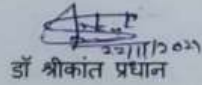 22/11/2021
डॉ श्रीकांत प्रधान